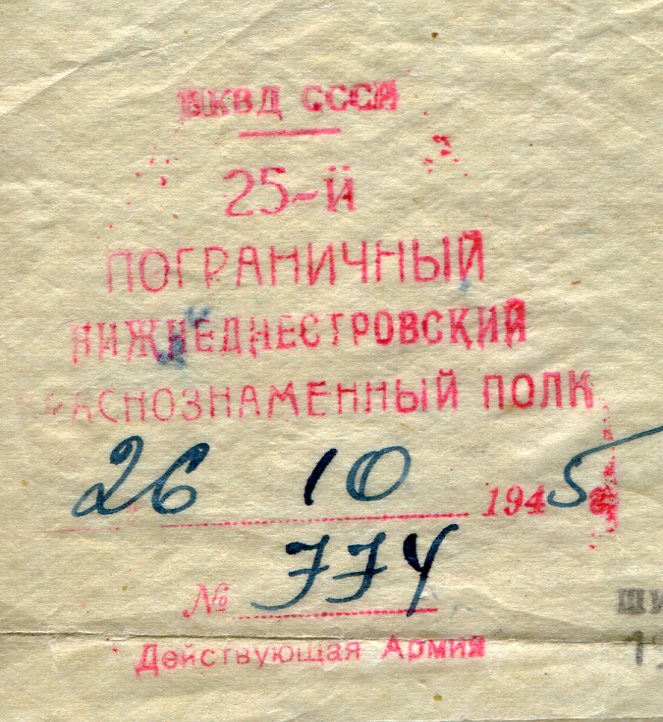 НКВД СССР
25-й
ПОГРАНИЧНЫЙ
НИЖНЕДНЕСТРОВСКИЙ
КРАСНОЗНАМЕННЫЙ ПОЛК
26 10 1945
№ 774
Действующая Армия